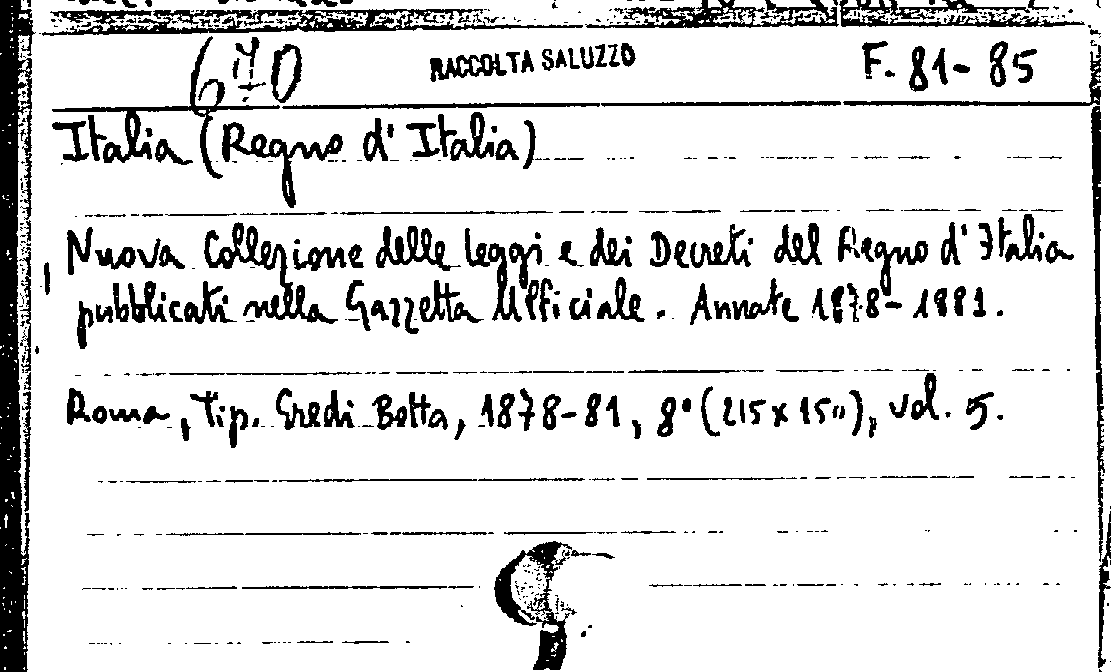 RACCOLTA SALUZZO F. 81-85
Italia (Regno d'Italia)
Nuova Collezione delle leggi e dei Decreti del Regno d'Italia
pubblicati nella Gazzetta Ufficiale. Annate 1878-1881.
Roma, Tip. Eredi Botta, 1878-81, 8° (215 x 150), vol. 5.